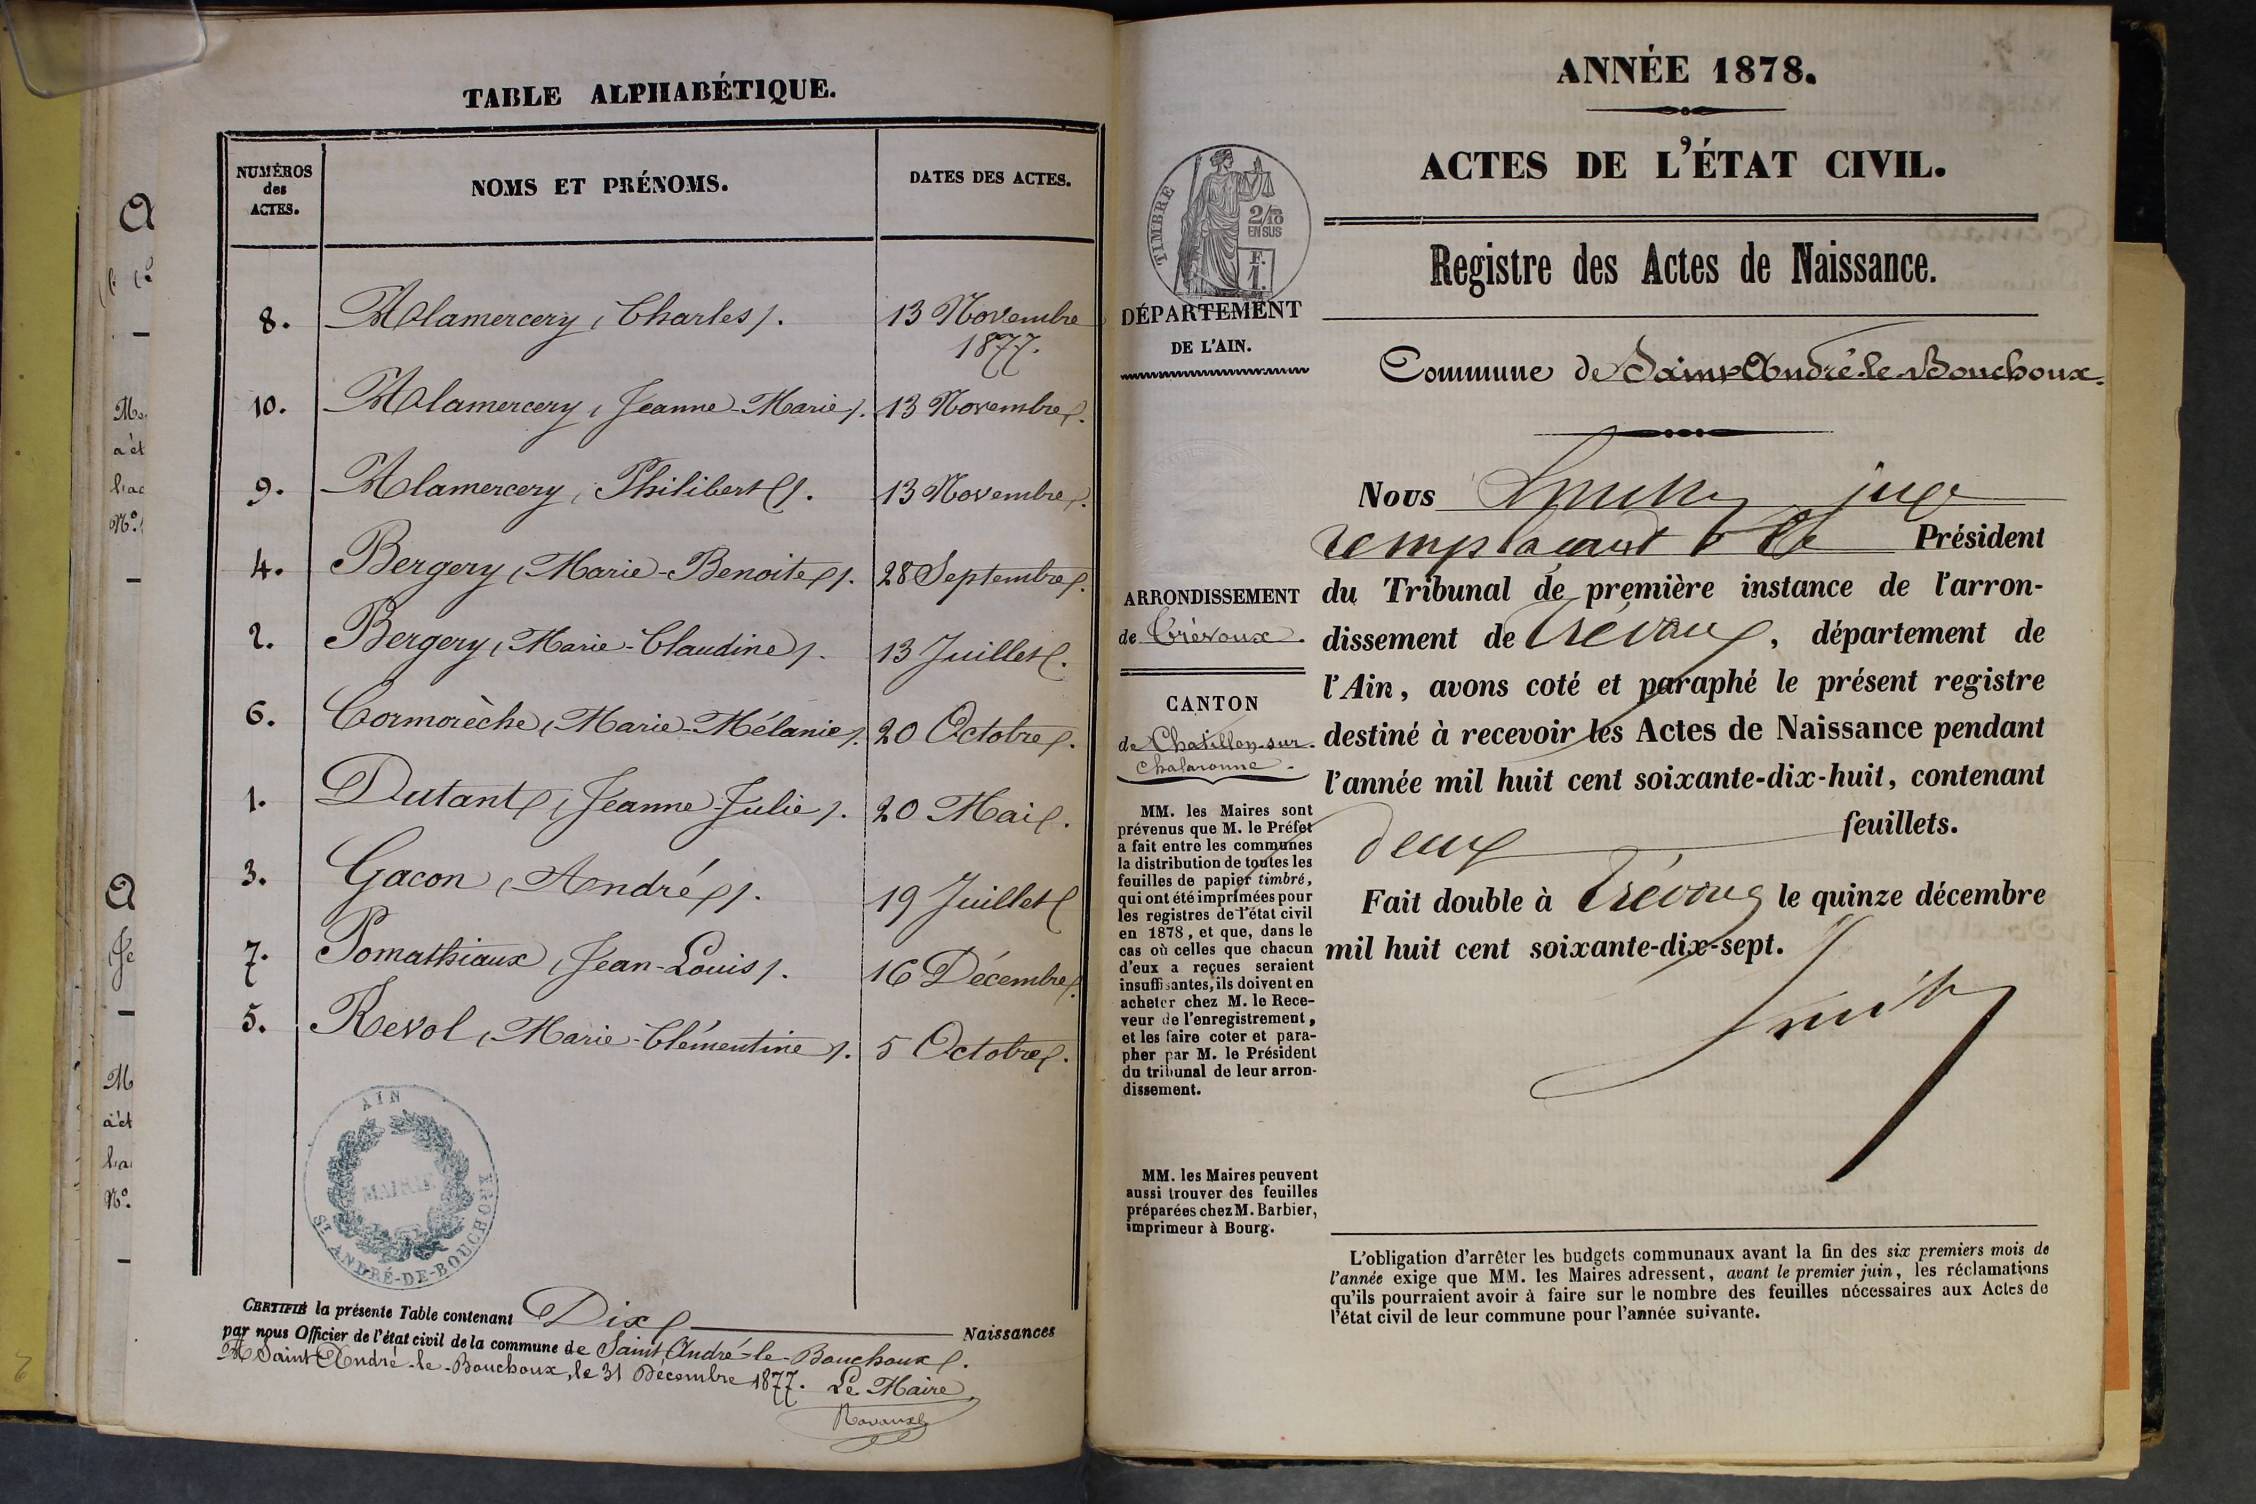 TABLE ALPHABÉTIQUE.
NUMÉROS des ACTES. NOMS ET PRÉNOMS. DATES DES ACTES.
8. Alamercery, Charles. 13 Novembre 1877.
10. Alamercery, Jeanne-Marie. 13 Novembre.
9. Alamercery, Philibert. 13 Novembre.
4. Bergery, Marie-Benoite. 28 Septembre.
2. Bergery, Marie-Claudine. 13 Juillet.
6. Cormorèche, Marie-Mélanie. 20 Octobre.
1. Dutant, Jeanne-Julie. 20 Mai.
3. Gacon, André. 19 Juillet
7. Pomathiaux, Jean-Louis. 16 Décembre.
5. Revol, Marie-Clémentine. 5 Octobre.
AIN
MAIRIE
St ANDRÉ-DE-BOUCHOUX
CERTIFIÉ la présente Table contenant Dix Naissances
par nous Officier de l'état civil de la commune de Saint André-le-Bouchoux.
A Saint André-le-Bouchoux, le 31 Décembre 1877. Le Maire
ANNÉE 1878.
ACTES DE L'ÉTAT CIVIL.
Registre des Actes de Naissance.
TIMBRE
2/10
EN SUS
F.
1.
DÉPARTEMENT
DE L'AIN.
Commune de Saint André-le-Bouchoux.
ARRONDISSEMENT
de Trévoux.
CANTON
de Chatillon-sur-
Chalaronne.
MM. les Maires sont
prévenus que M. le Préfet
a fait entre les communes
la distribution de toutes les
feuilles de papier timbré,
qui ont été imprimées pour
les registres de l'état civil
en 1878, et que, dans le
cas où celles que chacun
d'eux a reçues seraient
insuffisantes, ils doivent en
acheter chez M. le Rece-
veur de l'enregistrement,
et les faire coter et para-
pher par M. le Président
du tribunal de leur arron-
dissement.
MM. les Maires peuvent
aussi trouver des feuilles
préparées chez M. Barbier,
imprimeur à Bourg.
Nous juge
remplaçant Président
du Tribunal de première instance de l'arron-
dissement de Trévoux, département de
l'Ain, avons coté et paraphé le présent registre
destiné à recevoir les Actes de Naissance pendant
l'année mil huit cent soixante-dix-huit, contenant
deux feuillets.
Fait double à Trévoux le quinze décembre
mil huit cent soixante-dix-sept.
L'obligation d'arrêter les budgets communaux avant la fin des six premiers mois de
l'année exige que MM. les Maires adressent, avant le premier juin, les réclamations
qu'ils pourraient avoir à faire sur le nombre des feuilles nécessaires aux Actes de
l'état civil de leur commune pour l'année suivante.